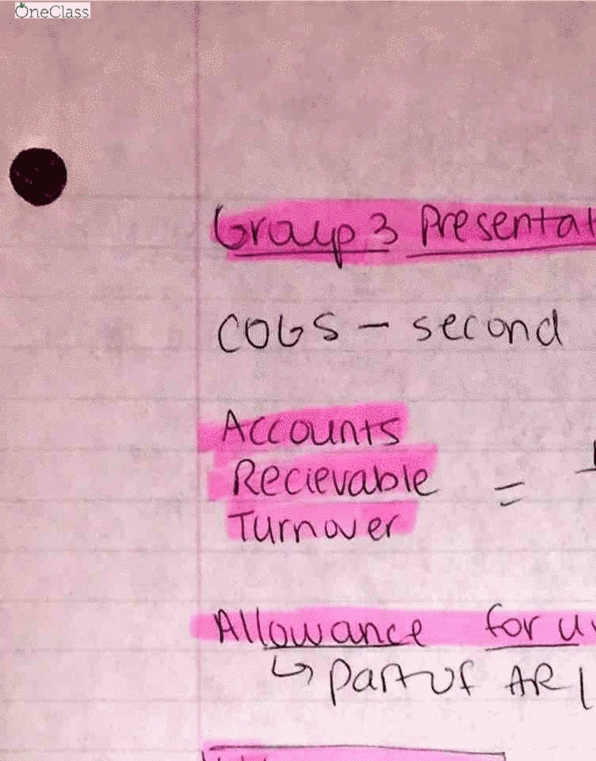 OneClass
Group 3 Presentat
COGS - second
Accounts
Recievable =
Turnover
Allowance for u
↳ part of AR